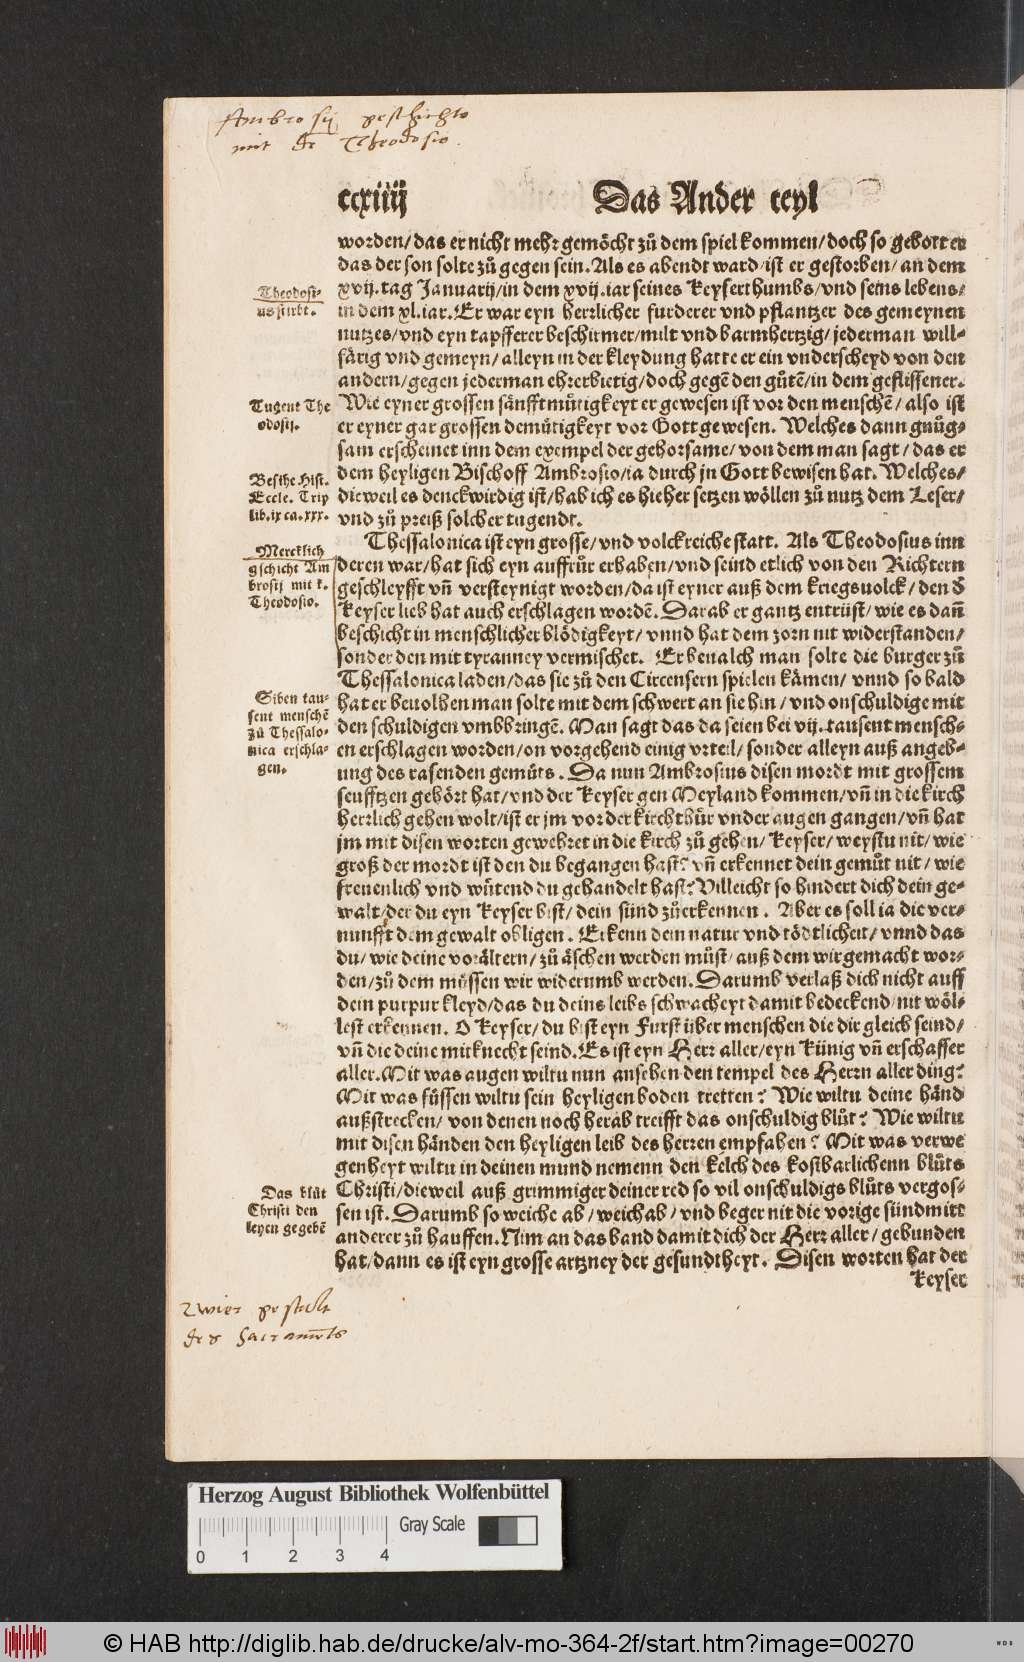 Ambrosij geschichte
mit de Theodosio.
ccxiiij
Das Ander teyl
worden/das er nicht mehr gemöcht zů dem spiel kommen/doch so gebott er
das der son solte zů gegen sein. Als es abendt ward/ist er gestorben/an dem
xvij.tag Januarij/in dem xvij.iar seines Keyserthumbs/vnd seins lebens/
in dem xl.iar. Er war eyn herzlicher furderer vnd pflantzer des gemeynen
nutzes/vnd eyn tapfferer beschirmer/milt vnd barmhertzig/jederman will-
färig vnd gemeyn/alleyn in der kleydung hatte er ein vnderscheyd von den
andern/gegen jederman ehrerbietig/doch gegē den gůtē/in dem geflissener.
Wie eyner grossen sänfftmůtigkeyt er gewesen ist vor den menschē/also ist
er eyner gar grossen demůtigkeyt vor Gott gewesen. Welches dann gnůg-
sam erscheinet inn dem exempel der gehorsame/von dem man sagt/das er
dem heyligen Bischoff Ambrosio/ia durch jn Gott bewisen hat. Welches/
dieweil es denckwirdig ist/hab ich es hieher setzen wöllen zů nutz dem Leser/
vnd zů preiß solcher tugendt.
Thessalonica ist eyn grosse/vnd volckreiche statt. Als Theodosius inn
deren war/hat sich eyn auffrůr erhaben/vnd seind etlich von den Richtern
geschleyfft vn̄ versteynigt worden/da ist eyner auß dem kriegsuolck/den d
Keyser lieb hat auch erschlagen wordē. Darab er gantz entrüst/wie es dan̄
beschicht in menschlicher blödigkeyt/vnnd hat dem zorn nit widerstanden/
sonder den mit tyranney vermischet. Er beualch man solte die burger zů
Thessalonica laden/das sie zů den Circensern spielen kämen/vnnd so bald
hat er beuolhen man solte mit dem schwert an sie hin/vnd onschuldige mit
den schuldigen vmbbringē. Man sagt das da seien bei vij.tausent mensch-
en erschlagen worden/on vorgehend einig vrteil/sonder alleyn auß angeb-
ung des rasenden gemůts. Da nun Ambrosius disen mordt mit grossem
seufftzen gehört hat/vnd der Keyser gen Meyland kommen/vn̄ in die kirch
herrlich gehen wolt/ist er jm vor der kirchthůr vnder augen gangen/vn̄ hat
jm mit disen worten gewehret in die kirch zů gehen/Keyser/weystu nit/wie
groß der mordt ist den du begangen hast? vn̄ erkennet dein gemůt nit/wie
freuenlich vnd wůtend du gehandelt hast? Villeicht so hindert dich dein ge-
walt/der du eyn Keyser bist/dein sünd zůerkennen. Aber es soll ia die ver-
nunfft dem gewalt obligen. Erkenn dein natur vnd tödtlicheit/vnnd das
du/wie deine vorältern/zů äschen werden můst/auß dem wir gemacht wor-
den/zů dem müssen wir widerumb werden. Darumb verlaß dich nicht auff
dein purpur kleyd/das du deins leibs schwacheyt damit bedeckend/nit wöl-
lest erkennen. O Keyser/du bist eyn Fürst über menschen die dir gleich seind/
vn̄ die deine mitknecht seind. Es ist eyn Herr aller/eyn Künig vn̄ erschaffer
aller. Mit was augen wiltu nun ansehen den tempel des Herrn aller ding?
Mit was füssen wiltu sein heyligen boden tretten? Wie wiltu deine händ
außstrecken/von denen noch herab treifft das onschuldig blůt? Wie wiltu
mit disen händen den heyligen leib des herren empfahen? Mit was verwe
genheyt wiltu in deinen mund nemenn den kelch des kostbarlichenn blůts
Christi/dieweil auß grimmiger deiner red so vil onschuldigs blůts vergos-
sen ist. Darumb so weiche ab/weich ab/vnd beger nit die vorige sünd mitt
anderer zů hauffen. Nim an das band damit dich der Herr aller/gebunden
hat/dann es ist eyn grosse artzney der gesundtheyt. Disen worten hat der
Keyser
Theodosi-
us stirbt.
Tugent The
odosij.
Besihe Hist.
Eccle. Trip
lib.ix ca.xxx.
Mercklich
gschicht Am
brosij mit k.
Theodosio.
Siben tau-
sent menschē
zů Thessalo-
nica erschla-
gen.
Das blůt
Christi den
leyen gegebē
zwier gestalt
des Sacramēts
Herzog August Bibliothek Wolfenbüttel
0 1 2 3 4
Gray Scale
© HAB http://diglib.hab.de/drucke/alv-mo-364-2f/start.htm?image=00270